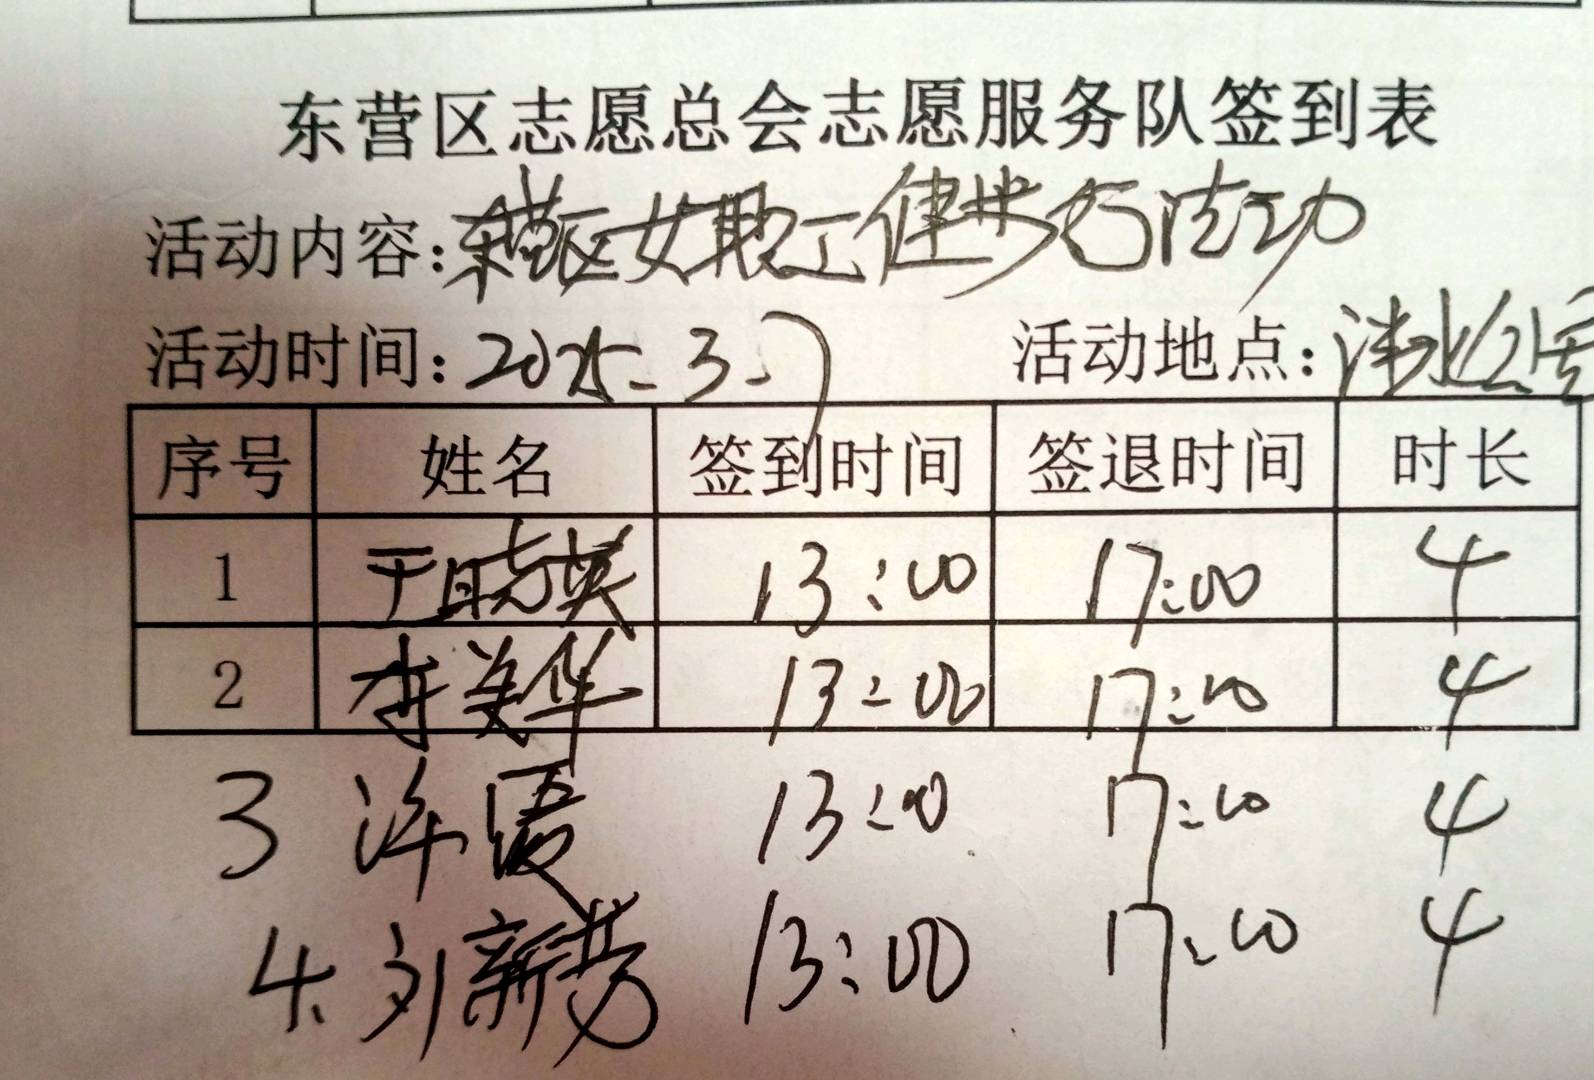 东营区志愿总会志愿服务队签到表
活动内容:东营区女职工健步行活动
活动时间:2025.3.7 活动地点:清水公园
序号 姓名 签到时间 签退时间 时长
1 于晓英 13:00 17:00 4
2 李美华 13:00 17:00 4
3 许 13:00 17:00 4
4. 刘新芳 13:00 17:00 4